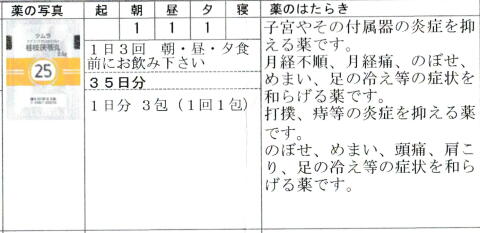 薬の写真 起 朝 昼 夕 寝 薬のはたらき
1 1 1
ツムラ
桂枝茯苓丸
25
1日3回 朝・昼・夕食
前にお飲み下さい
35日分
1日分 3包(1回1包)
子宮やその付属器の炎症を抑
える薬です。
月経不順、月経痛、のぼせ、
めまい、足の冷え等の症状を
和らげる薬です。
打撲、痔等の炎症を抑える薬
です。
のぼせ、めまい、頭痛、肩こ
り、足の冷え等の症状を和ら
げる薬です。